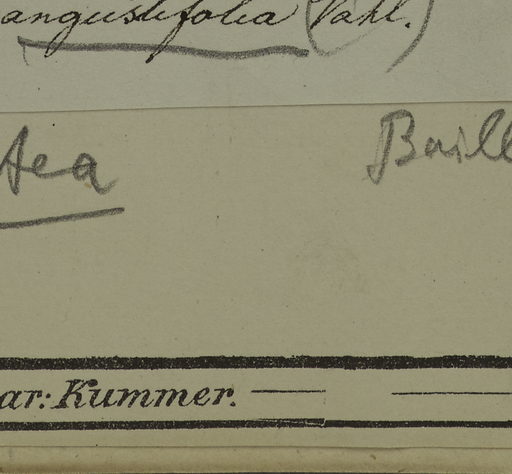 angustifolia (Vahl.)
tea Baill
ar: Kummer.